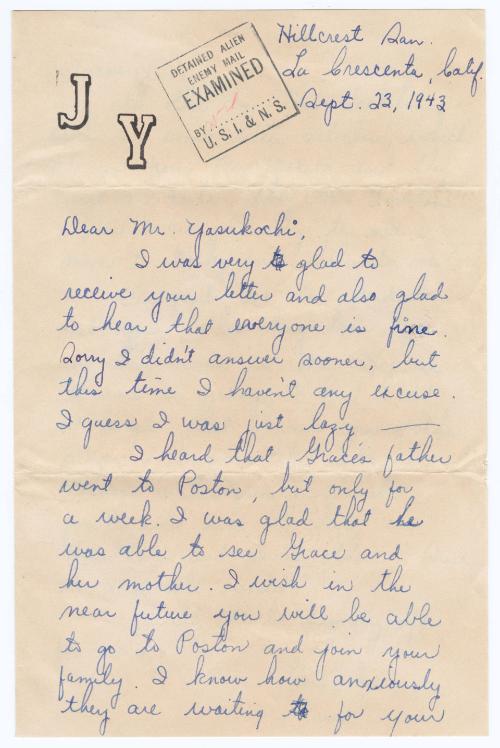 J
Y
DETAINED ALIEN
ENEMY MAIL
EXAMINED
BY
U. S. I. & N. S.
Hillcrest San.
La Crescenta, Calif.
Sept. 23, 1943
Dear Mr. Yasukochi,
I was very glad to
receive your letter and also glad
to hear that everyone is fine.
Sorry I didn't answer sooner, but
this time I haven't any excuse.
I guess I was just lazy —
I heard that Grace's father
went to Poston, but only for
a week. I was glad that he
was able to see Grace and
her mother. I wish in the
near future you will be able
to go to Poston and join your
family. I know how anxiously
they are waiting for your